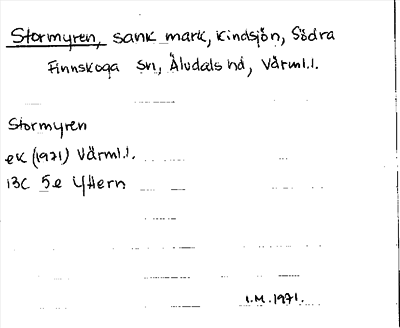 Stormyren, sank mark, Kindsjön, Södra
Finnskoga sn, Älvdals hd, Värml.l.
Stormyren
ek (1971) Värml.l.
13C 5e Yttern
I.M. 1971.